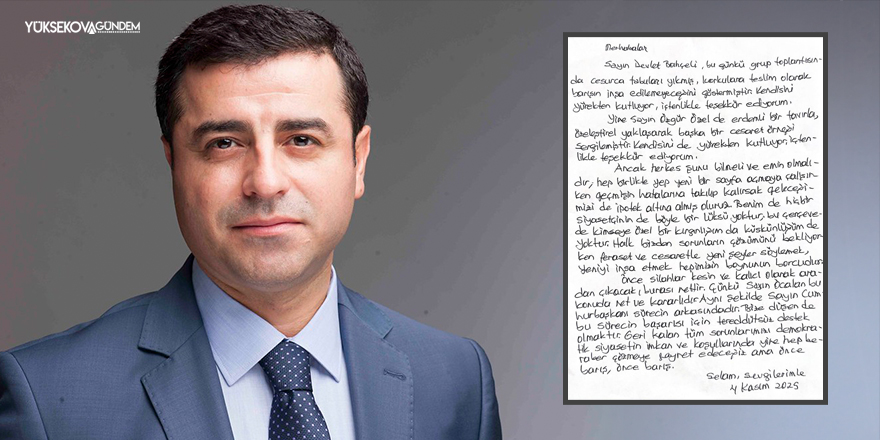 YÜKSEKOVAGÜNDEM
Merhabalar
Sayın Devlet Bahçeli, bu günkü grup toplantısın-
da cesurca tabuları yıkmış, korkulara teslim olarak
barışın inşa edilemeyeceğini göstermiştir. Kendisini
yürekten kutluyor, içtenlikle teşekkür ediyorum.
Yine Sayın Özgür Özel de erdemli bir tavırla,
özeleştirel yaklaşarak başka bir cesaret örneği
sergilemiştir. Kendisini de yürekten kutluyor, içten-
likle teşekkür ediyorum.
Ancak herkes şunu bilmeli ve emin olmalı-
dır, hep birlikte yep yeni bir sayfa açmaya çalışır-
ken geçmişin hatalarına takılıp kalırsak geleceği-
mizi de ipotek altına almış oluruz. Benim de hiçbir
siyasetçinin de böyle bir lüksü yoktur, bu çerçeve-
de kimseye özel bir kırgınlığım da küskünlüğüm de
yoktur. Halk bizden sorunların çözümünü bekliyor-
ken feraset ve cesaretle yeni şeyler söylemek,
yeniyi inşa etmek hepimizin boynunun borcudur.
Önce silahlar kesin ve kalıcı olarak ara-
dan çıkacak, burası nettir. Çünkü Sayın Öcalan bu
konuda net ve kararlıdır. Aynı şekilde Sayın Cum-
hurbaşkanı sürecin arkasındadır. Bize düşen de
bu sürecin başarısı için tereddütsüz destek
olmaktır. Geri kalan tüm sorunlarımızı demokra-
tik siyasetin imkan ve koşullarında yine hep be-
raber çözmeye gayret edeceğiz ama önce
barış, önce barış.
Selam, sevgilerimle
4 Kasım 2025